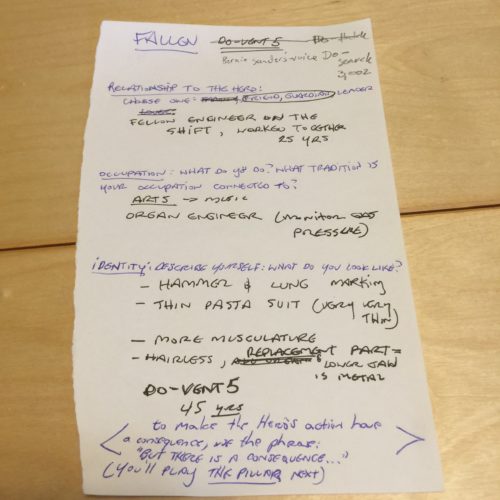 FALLEN DO-VENT 5
Bernie Sanders voice Do-
search
3,002
RELATIONSHIP TO THE HERO:
CHOOSE ONE: FRIEND, GUARDIAN, LEADER
FELLOW ENGINEER ON THE
SHIFT, WORKED TOGETHER
25 YRS
OCCUPATION: WHAT DO YOU DO? WHAT TRADITION IS
YOUR OCCUPATION CONNECTED TO?
ARTS → MUSIC
ORGAN ENGINEER (MONITOR GAS
PRESSURE)
IDENTITY: DESCRIBE YOURSELF: WHAT DO YOU LOOK LIKE?
- HAMMER & LUNG MARKING
- THIN PASTA SUIT (VERY VERY
THIN)
- MORE MUSCULATURE
- HAIRLESS, REPLACEMENT PART =
LOWER JAW
IS METAL
DO-VENT 5
45 YRS
to make the Hero's action have
a consequence, use the phrase:
"BUT THERE IS A CONSEQUENCE..."
(YOU'LL PLAY THE PILLAR NEXT)